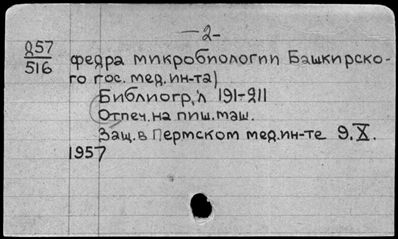 — 2 —
Д57
516
федра микробиологии Башкирско-
го гос. мед. ин-та)
Библиогр. л 191-211
Отпеч. на пиш. маш.
Защ. в Пермском мед. ин-те 9.X.
1957